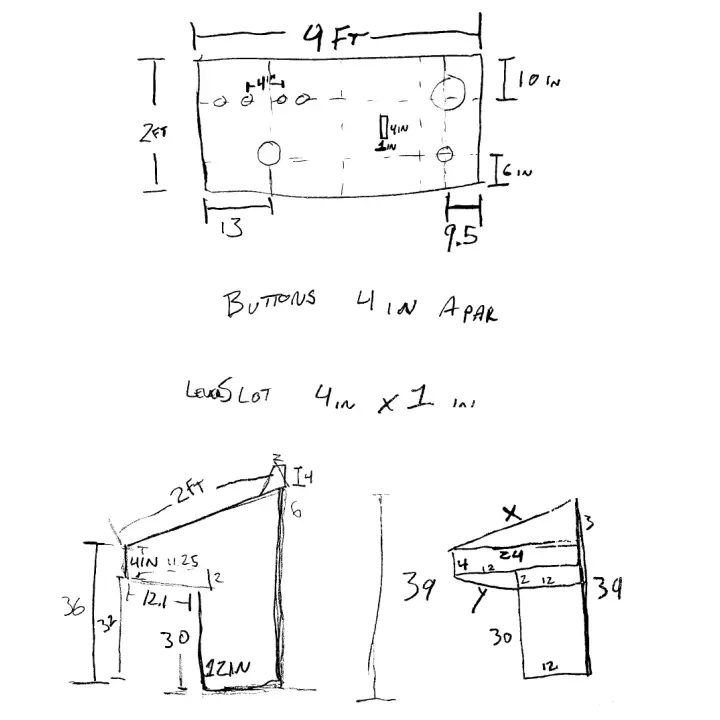 4 FT
4IN
10 IN
2FT
4IN
1IN
6 IN
13
9.5
BUTTONS 4 IN APAR
LEVERSLOT 4IN X 1 IN
2
2FT
4
6
X
3
4IN 11.25
24
2
4 12
12.1
2 12
36
32
39
39
Y
30
30
12IN
12